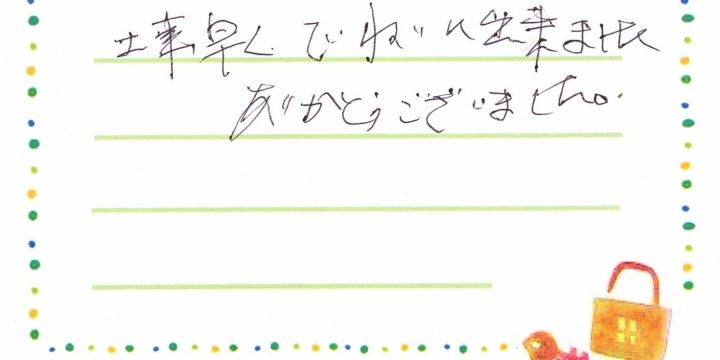 工事早く でいねいに出来ました
ありがとうございました。